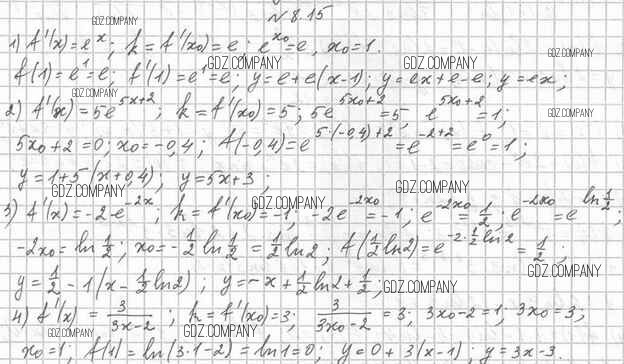 № 8.15
GDZ.COMPANY
1) f'(x)=e^x; k=f'(x₀)=e; e^x₀=e, x₀=1.
GDZ.COMPANY GDZ.COMPANY GDZ.COMPANY
f(1)=e¹=e; f'(1)=e¹=e; y=e+e(x-1); y=ex+e-e; y=ex;
GDZ.COMPANY
2) f'(x)=5e^(5x+2); k=f'(x₀)=5; 5e^(5x₀+2)=5, e^(5x₀+2)=1;
GDZ.COMPANY
5x₀+2=0; x₀=-0,4; f(-0,4)=e^(5·(-0,4)+2)=e^(-2+2)=e⁰=1;
y=1+5(x+0,4); y=5x+3;
GDZ.COMPANY GDZ.COMPANY
GDZ.COMPANY
3) f'(x)=-2·e^(-2x); k=f'(x₀)=-1; -2e^(-2x₀)=-1; e^(-2x₀)=1/2; e^(-2x₀)=e^(ln 1/2);
-2x₀=ln 1/2; x₀=-1/2 ln 1/2=1/2 ln2; f(1/2 ln2)=e^(-2·1/2 ln2)=1/2;
GDZ.COMPANY
y=1/2-1(x-1/2 ln2); y=-x+1/2 ln2+1/2;
GDZ.COMPANY
4) f'(x)=3/(3x-2); k=f'(x₀)=3; 3/(3x₀-2)=3; 3x₀-2=1; 3x₀=3;
GDZ.COMPANY GDZ.COMPANY
x₀=1; f(1)=ln(3·1-2)=ln1=0; y=0+3(x-1); y=3x-3.